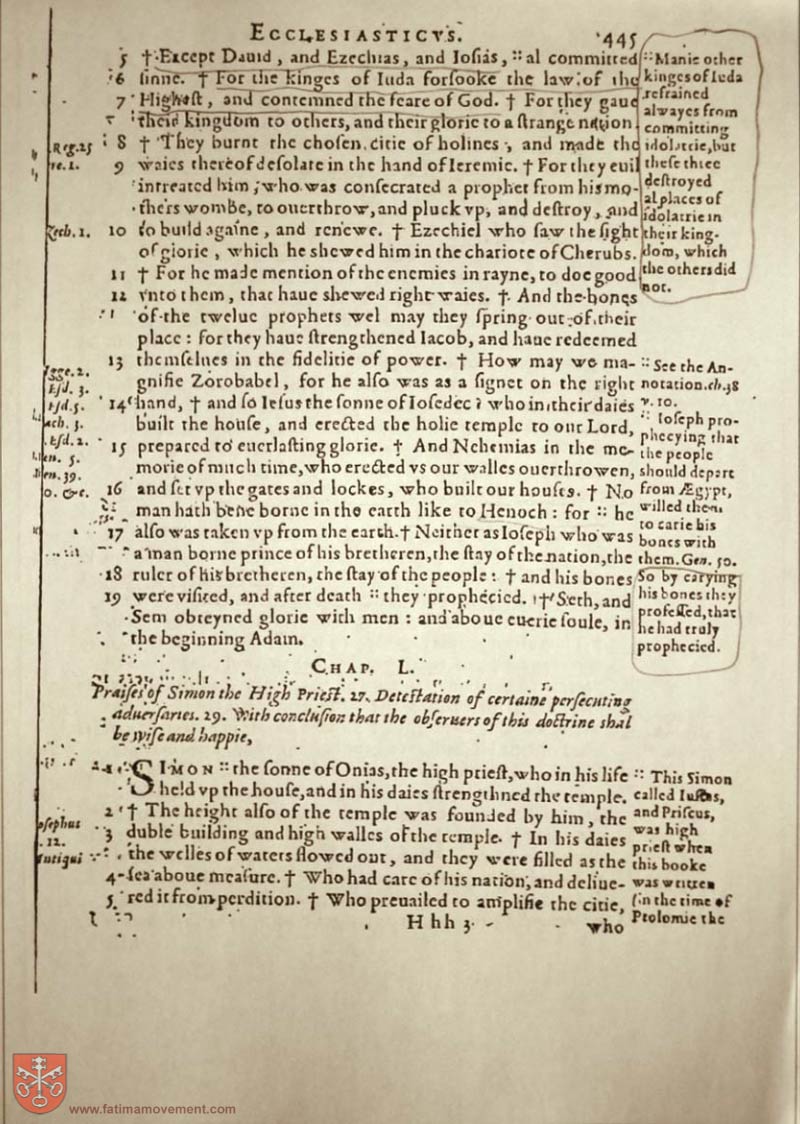 ECCLESIASTICVS. 445
5 † Except Dauid, and Ezechias, and Iosias, :: al committed
6 sinne. † For the kinges of Iuda forsooke the law of the
7 Highest, and contemned the feare of God. † For they gaue
their kingdom to others, and their glorie to a strange nation.
8 † They burnt the chosen citie of holines, and made the
9 waies thereof desolate in the hand of Ieremie. † For they euil
intreated him, who was consecrated a prophet from his mo-
thers wombe, to ouerthrow, and pluck vp, and destroy, and
10 to build againe, and renewe. † Ezechiel who saw the sight
of glorie, which he shewed him in the chariote of Cherubs.
11 † For he made mention of the enemies in rayne, to doe good
12 vnto them, that haue shewed right waies. † And the bones
of the twelue prophets wel may they spring out of their
place: for they haue strengthened Iacob, and haue redeemed
13 themselues in the fidelitie of power. † How may we ma-
gnifie Zorobabel, for he also was as a signet on the right
14 hand, † and so Iesus the sonne of Iosedec? who in their daies
built the house, and erected the holie temple to our Lord,
15 prepared to euerlasting glorie. † And Nehemias in the me-
morie of much time, who erected vs our walles ouerthrowen,
16 and set vp the gates and lockes, who built our houses. † No
man hath bene borne in the earth like to Henoch: for :: he
17 also was taken vp from the earth. † Neither as Ioseph who was
a man borne prince of his bretheren, the stay of the nation, the
18 ruler of his bretheren, the stay of the people: † and his bones
19 were visited, and after death :: they prophecied. † Seth, and
Sem obteyned glorie with men: and aboue euerie soule, in
the beginning Adam.
:: Manie other
kinges of Iuda
refrained
alwayes from
committing
idolatrie, but
these three
destroyed
al places of
idolatrie in
their king-
dom, which
the others did
not.
:: See the An-
notation. ch. 38
v. 10.
:: Ioseph pro-
phecying that
the people
should depart
from Ægypt,
willed them
to carie his
bones with
them. Gen. 50.
So by carying
his bones they
professed, that
he had truly
prophecied.
Reg. 25
re. 1.
Zech. 1.
Agge. 2.
Esd. 3.
Esd. 5.
ach. 3.
Esd. 2.
en. 5.
en. 39.
0. &c.
CHAP. L.
Praises of Simon the High Priest. 27. Detestation of certaine persecuting
aduersaries. 29. With conclusion that the obseruers of this doctrine shal
be wise and happie,
1 SIMON :: the sonne of Onias, the high priest, who in his life
held vp the house, and in his daies strengthned the temple.
2 † The height also of the temple was founded by him, the
3 duble building and high walles of the temple. † In his daies
the welles of waters flowed out, and they were filled as the
4 sea aboue measure. † Who had care of his nation, and deliue-
5 red it from perdition. † Who preuailed to amplifie the citie,
Hhh 3 who
:: This Simon
called Iustus,
and Priscus,
was high
priest when
this booke
was writen
in the time of
Ptolomie the
osephus
12.
Antiqui
www.fatimamovement.com